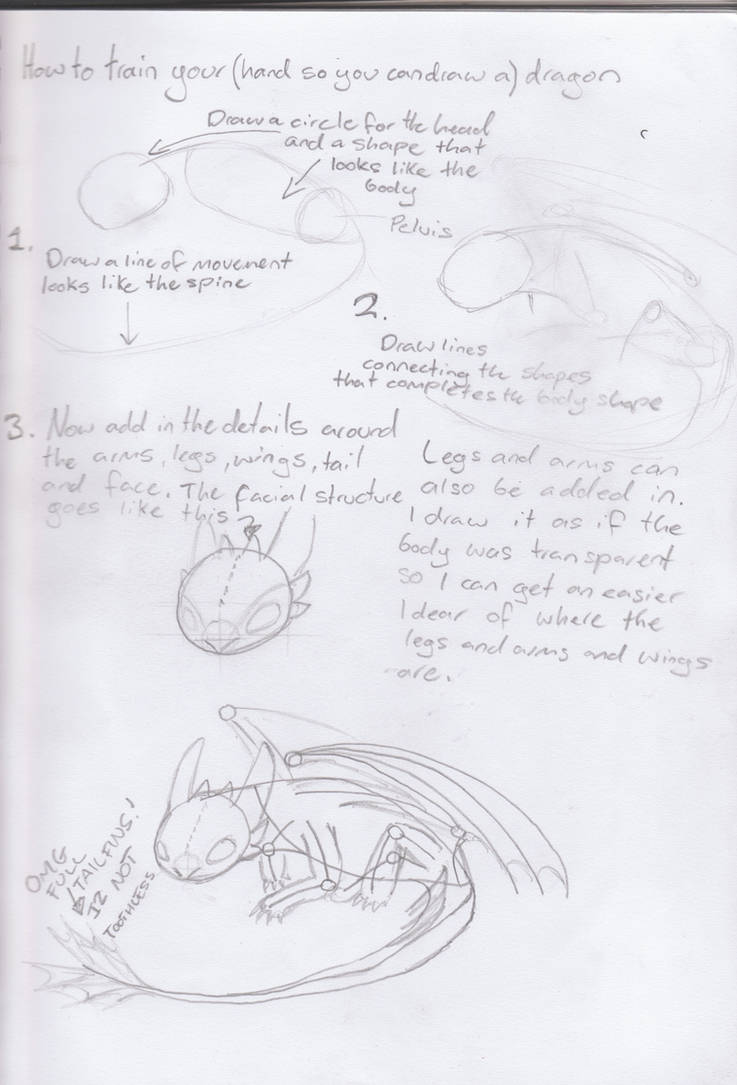 How to train your (hand so you can draw a) dragon
Draw a circle for the head
and a shape that
looks like the
body
Pelvis
1.
Draw a line of movement
looks like the spine
2.
Draw lines
connecting the shapes
that completes the body shape
3. Now add in the details around
the arms, legs, wings, tail
and face. The facial structure
goes like this
Legs and arms can
also be added in.
I draw it as if the
body was transparent
so I can get an easier
Idear of where the
legs and arms and wings
are.
OMG
FULL
TAILFINS!
IZ NOT
TOOTHLESS